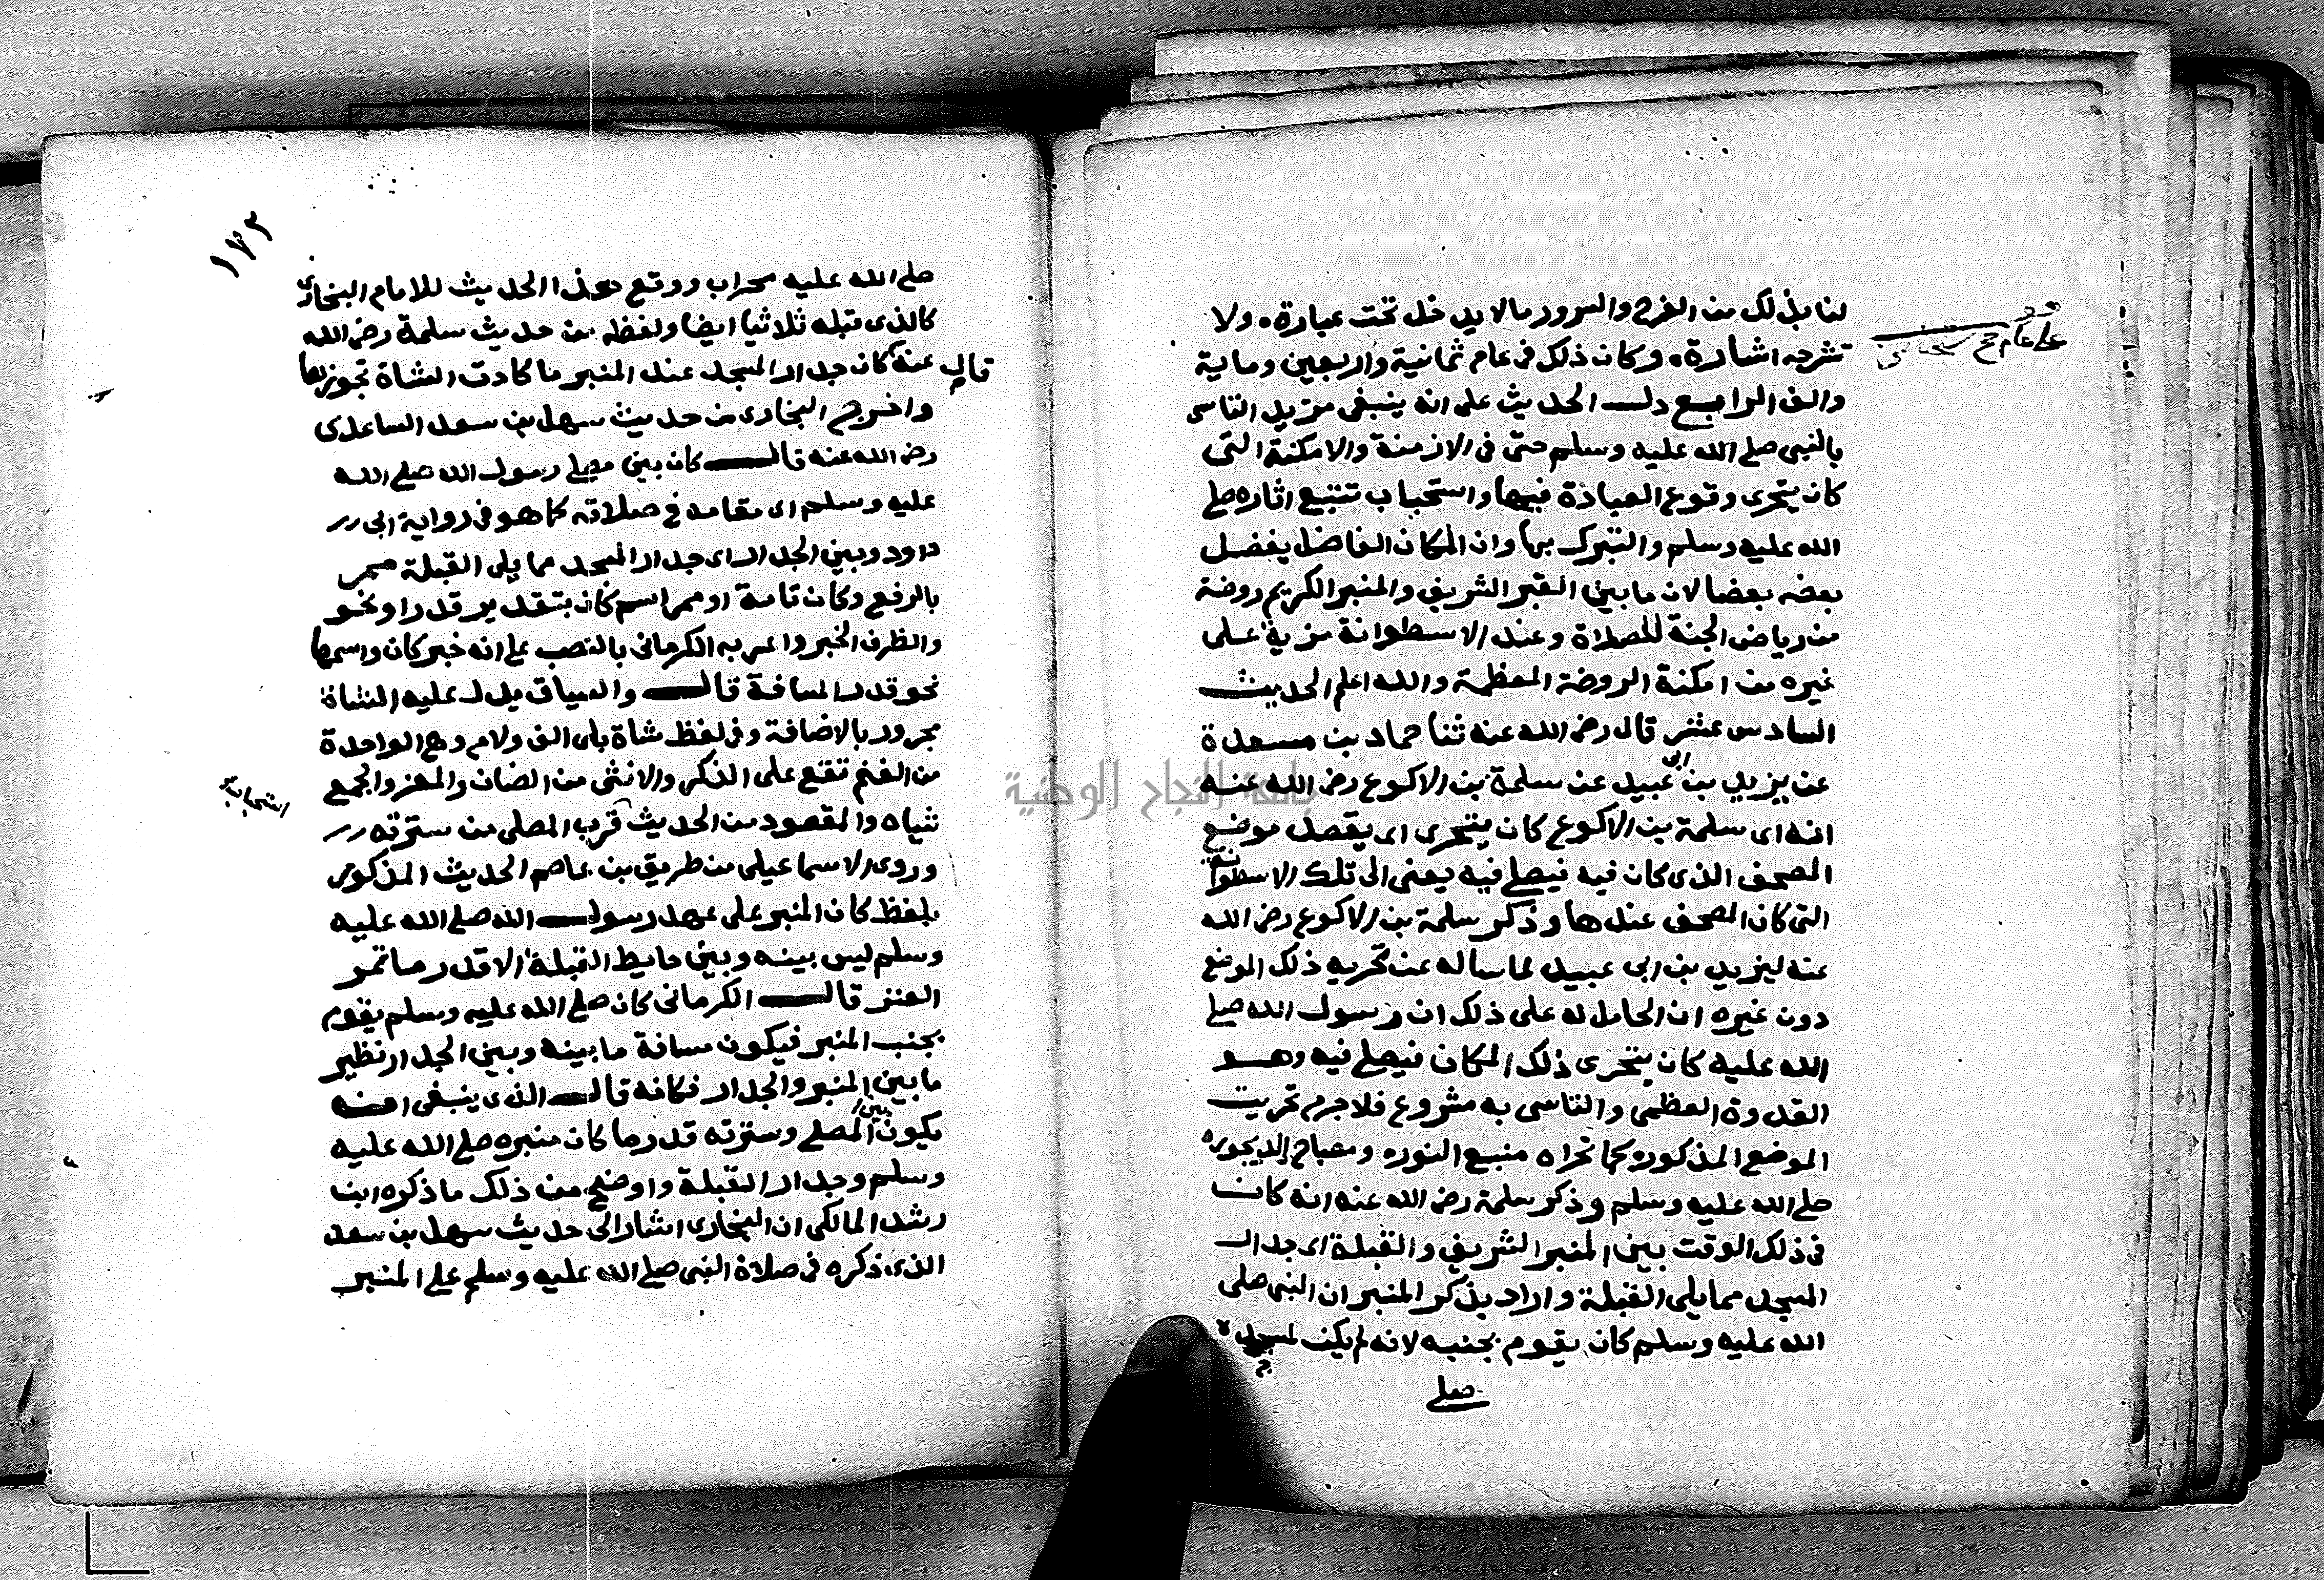 لنا بذلك من الفرح والسرور مالا يدخل تحت عبارة ولا
تشرحه اشارة وكان ذلك في عام ثمانية واربعين وماية
والف الرابع دل الحديث على انه ينبغي مزيد التاسي
بالنبي صلى الله عليه وسلم حتى في الازمنة والامكنة التي
كان يتحرى وقوع العبادة فيها واستحباب تتبع اثاره صلى
الله عليه وسلم والتبرك بها وان المكان الفاضل يفضل
بعضه بعضا لان ما بين القبر الشريف والمنبر الكريم روضة
من رياض الجنة للصلاة وعند الاسطوانة مزية على
غيره من امكنة الروضة المعظمة والله اعلم الحديث
السادس عشر قال رضي الله عنه ثنا حماد بن مسعدة
عن يزيد بن ابي عبيد عن سلمة بن الاكوع رضي الله عنه
انه اي سلمة بن الاكوع كان يتحرى اي يقصد موضع
المصحف الذي كان فيه فيصلي فيه يعني الى تلك الاسطوانة
التي كان المصحف عندها وذكر سلمة بن الاكوع رضي الله
عنه ليزيد بن ابي عبيد لما ساله عن تحريه ذلك الموضع
دون غيره ان الحامل له على ذلك ان رسول الله صلى
الله عليه كان يتحرى ذلك المكان فيصلي فيه وهو
القدوة العظمى والتاسي به مشروع فلا جرم تحريت
الموضع المذكور كما تحراه منبع النور ومصباح الديجور
صلى الله عليه وسلم وذكر سلمة رضي الله عنه انه كان
في ذلك الوقت بين المنبر الشريف والقبلة اي جدار
المسجد مما يلي القبلة واراد بذكر المنبر ان النبي صلى
الله عليه وسلم كان يقوم بجنبه لانه لم يكن لمسجده
صلى
١٧٢
صلى الله عليه محراب ووقع هذا الحديث للامام البخاري
كالذي قبله ثلاثيا ايضا ولفظه من حديث سلمة رضي الله
عنه قال كان جدار المسجد عند المنبر ما كادت الشاة تجوزها
واخرج البخاري من حديث سهل بن سعد الساعدي
رضي الله عنه قال كان بين مصلى رسول الله صلى الله
عليه وسلم اي مقامه في صلاته كما هو في رواية ابي
داود وبين الجدار اي جدار المسجد مما يلي القبلة ممر
بالرفع وكان تامة او ممر اسم كان بتقدير قدر او نحو
والظرف الخبر واعربه الكرماني بالنصب على انه خبر كان واسمها
نحو قدر المسافة قال والسياق يدل عليه الشاة
مجرور بالاضافة وفي لفظ شاة بلى الف ولام وهي الواحدة
من الغنم تقع على الذكر والانثى من الضان والمعز والجمع
شياه والمقصود من الحديث قرب المصلى من سترته
وروى الاسماعيلي من طريق بن عاصم الحديث المذكور
بلفظ كان المنبر على عهد رسول الله صلى الله عليه
وسلم ليس بينه وبين حايط القبلة الا قدر ما تمر
العنز قال الكرماني كان صلى الله عليه وسلم يقوم
بجنب المنبر فيكون مسافة ما بينه وبين الجدار نظير
ما بين المنبر والجدار فكانه قال الذي ينبغي انه
يكون بين المصلي وسترته قدر ما كان منبره صلى الله عليه
وسلم وجدار القبلة واوضح من ذلك ما ذكره ابن
رشد المالكي ان البخاري اشار الى حديث سهل بن سعد
الذي ذكره في صلاة النبي صلى الله عليه وسلم على المنبر
جامعة النجاح الوطنية